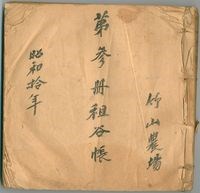 竹山農場
第參冊租谷帳
昭和拾年